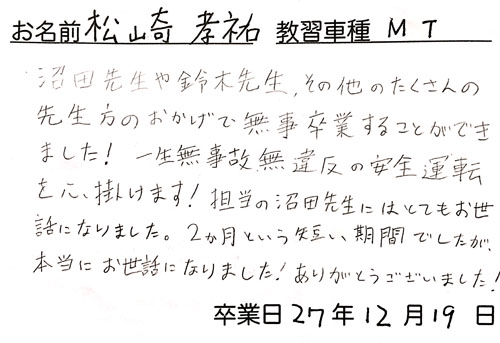 お名前 松崎 孝祐 教習車種 MT
沼田先生や鈴木先生、その他のたくさんの
先生方のおかげで無事卒業することができ
ました！一生無事故無違反の安全運転
を心掛けます！担当の沼田先生にはとてもお世
話になりました。2か月という短い期間でしたが、
本当にお世話になりました！ありがとうございました！
卒業日 27年 12月 19日